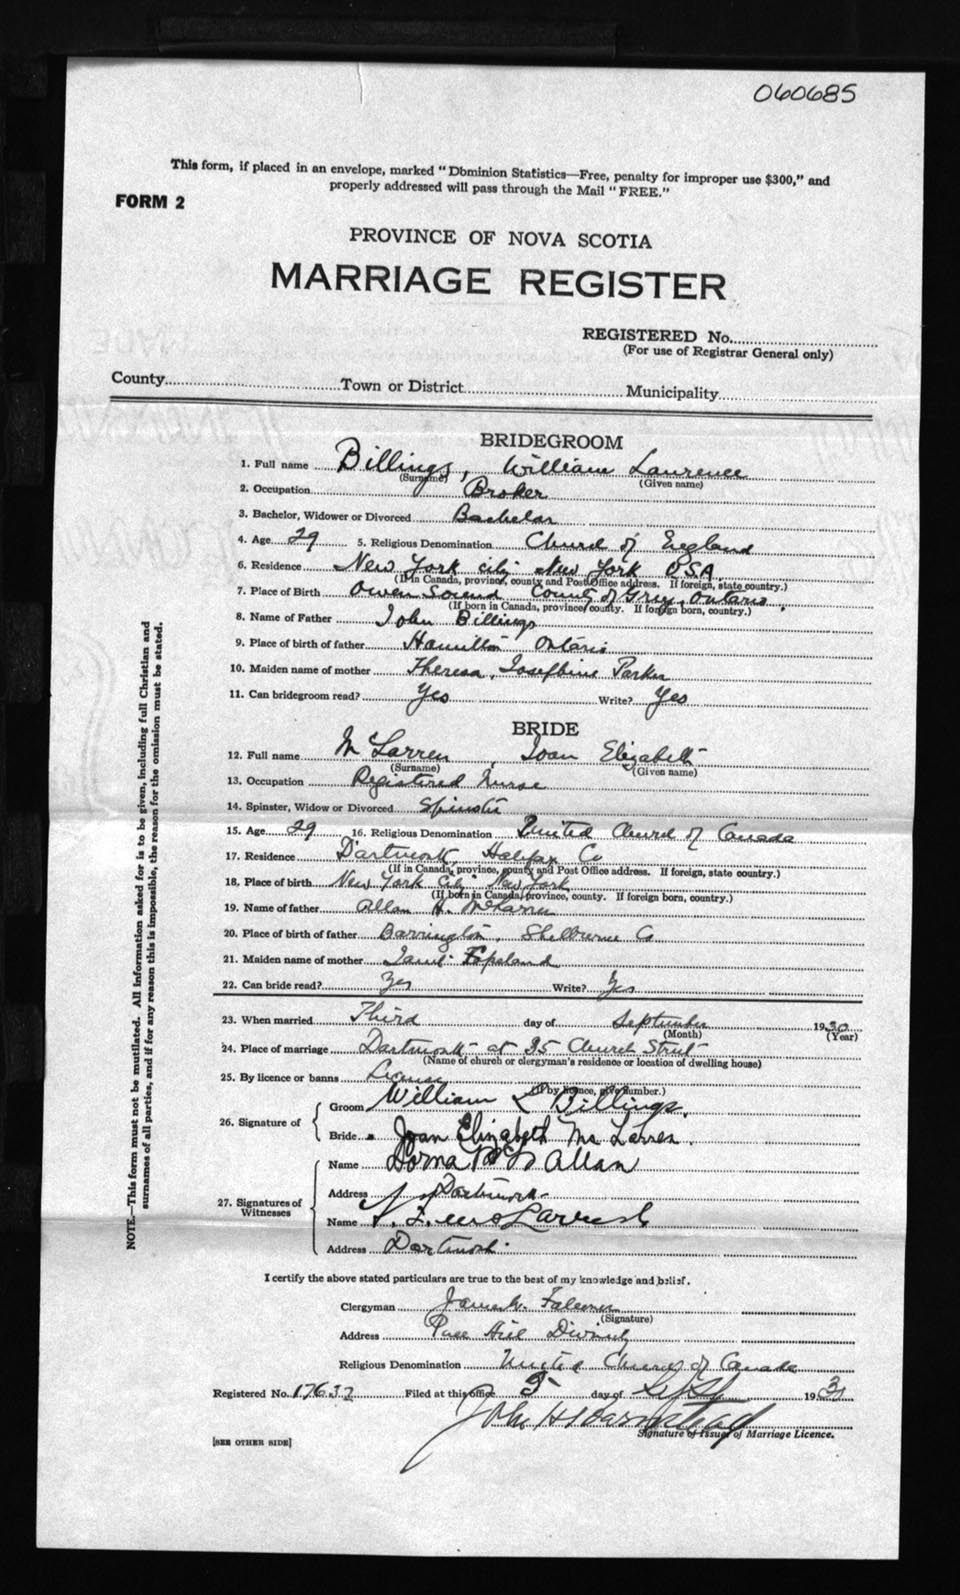 060685
This form, if placed in an envelope, marked "Dominion Statistics—Free, penalty for improper use $300," and
properly addressed will pass through the Mail "FREE."
FORM 2
PROVINCE OF NOVA SCOTIA
MARRIAGE REGISTER
REGISTERED No.
(For use of Registrar General only)
County Town or District Municipality
BRIDEGROOM
1. Full name Billings, William Laurence
(Surname) (Given name)
2. Occupation Broker
3. Bachelor, Widower or Divorced Bachelor
4. Age 29 5. Religious Denomination Church of England
6. Residence New York City New York USA
(If in Canada, province, county and Post Office address. If foreign, state country.)
7. Place of Birth Owen Sound County of Grey, Ontario.
(If born in Canada, province, county. If foreign born, country.)
8. Name of Father John Billings
9. Place of birth of father Hamilton Ontario
10. Maiden name of mother Theresa Josephine Parker
11. Can bridegroom read? Yes Write? Yes
BRIDE
12. Full name McLarren, Joan Elizabeth
(Surname) (Given name)
13. Occupation Registered Nurse
14. Spinster, Widow or Divorced Spinster
15. Age 29 16. Religious Denomination United Church of Canada
17. Residence Dartmouth, Halifax Co
(If in Canada, province, county and Post Office address. If foreign, state country.)
18. Place of birth New York City New York
(If born in Canada, province, county. If foreign born, country.)
19. Name of father Allan H. McLarren
20. Place of birth of father Barrington, Shelburne Co
21. Maiden name of mother Copeland
22. Can bride read? Yes Write? Yes
23. When married Third day of September 1930
(Month) (Year)
24. Place of marriage Dartmouth at 35 Church Street
(Name of church or clergyman's residence or location of dwelling house)
25. By licence or banns License
(If by licence, give number.)
26. Signature of
Groom William L Billings.
Bride Joan Elizabeth McLarren.
27. Signatures of Witnesses
Name Lorna Allan
Address Dartmouth
Name
Address Dartmouth
I certify the above stated particulars are true to the best of my knowledge and belief.
Clergyman James W. Falconer
(Signature)
Address Pine Hill Divinity
Religious Denomination United Church of Canada
Registered No. 17637 Filed at this office 5 day of Sept 193
John H
Signature of Issuer of Marriage Licence.
[SEE OTHER SIDE]
NOTE.—This form must not be mutilated. All information asked for is to be given, including full Christian and
surnames of all parties, and if for any reason this is impossible, the reason for the omission must be stated.